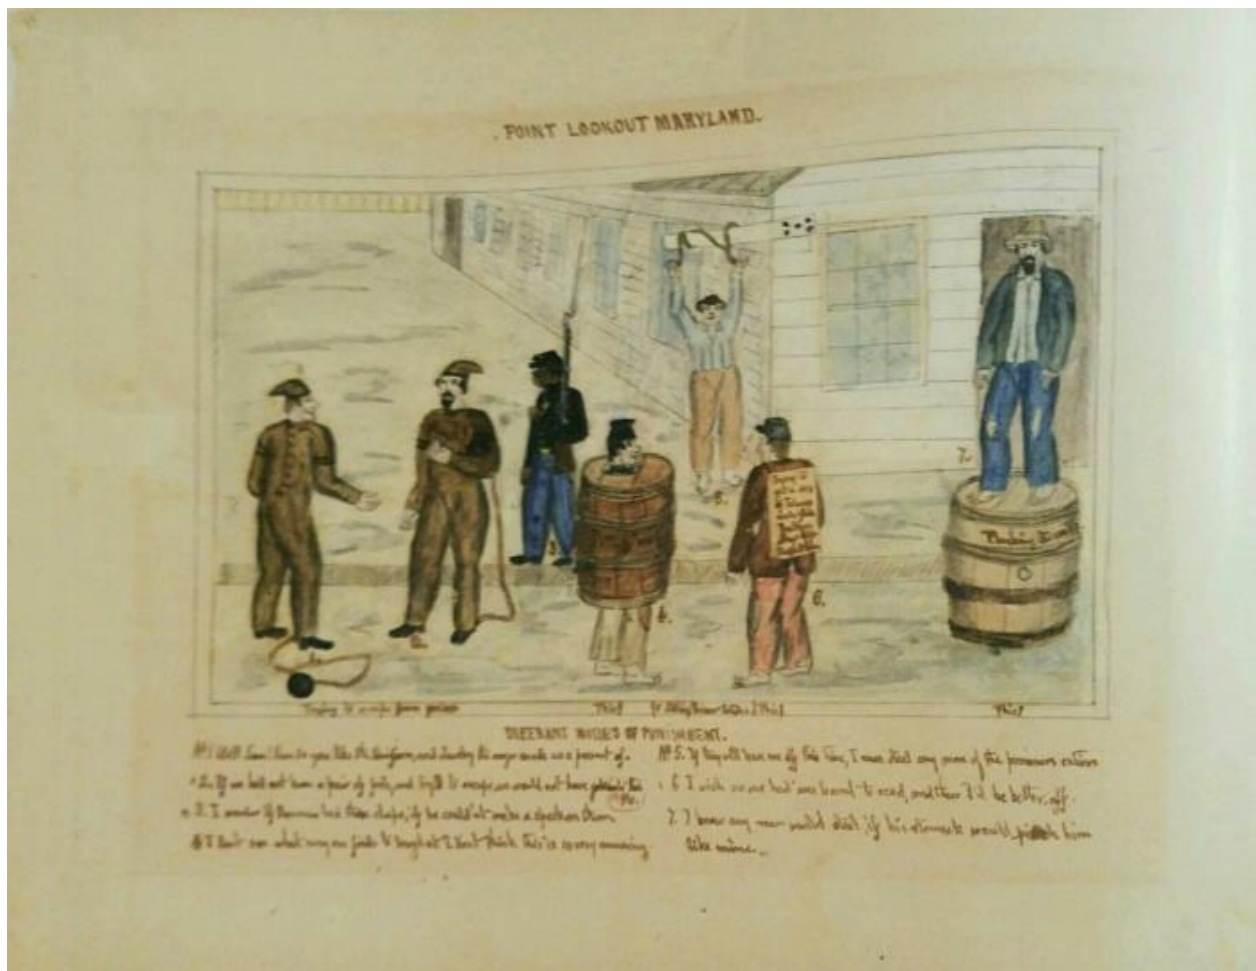 POINT LOOKOUT MARYLAND.
7.
5.
3.
4.
6.
Trying to escape from prison
Thief
Thief
Thief
DIFERANT MODES OF PUNISHMENT.
No 1 Well Sam! How do you like the Uniform, and Jewelry the major made us a present of.
2. If we had not been a pair of fools, and try'd to escape we would not have got into this
Fix.
3. I wonder if Barnum had these chaps, if he could'nt make a spec on them
4 I dont see what any one finds to laugh at I dont think this is so very amusing.
No 5. If they will let me off this time, I never steal any more of the prisoners
6 I wish no one had ever learnt to read, and then I'd be better off.
7. I know any man would steal, if his stomach would pinch him
like mine.